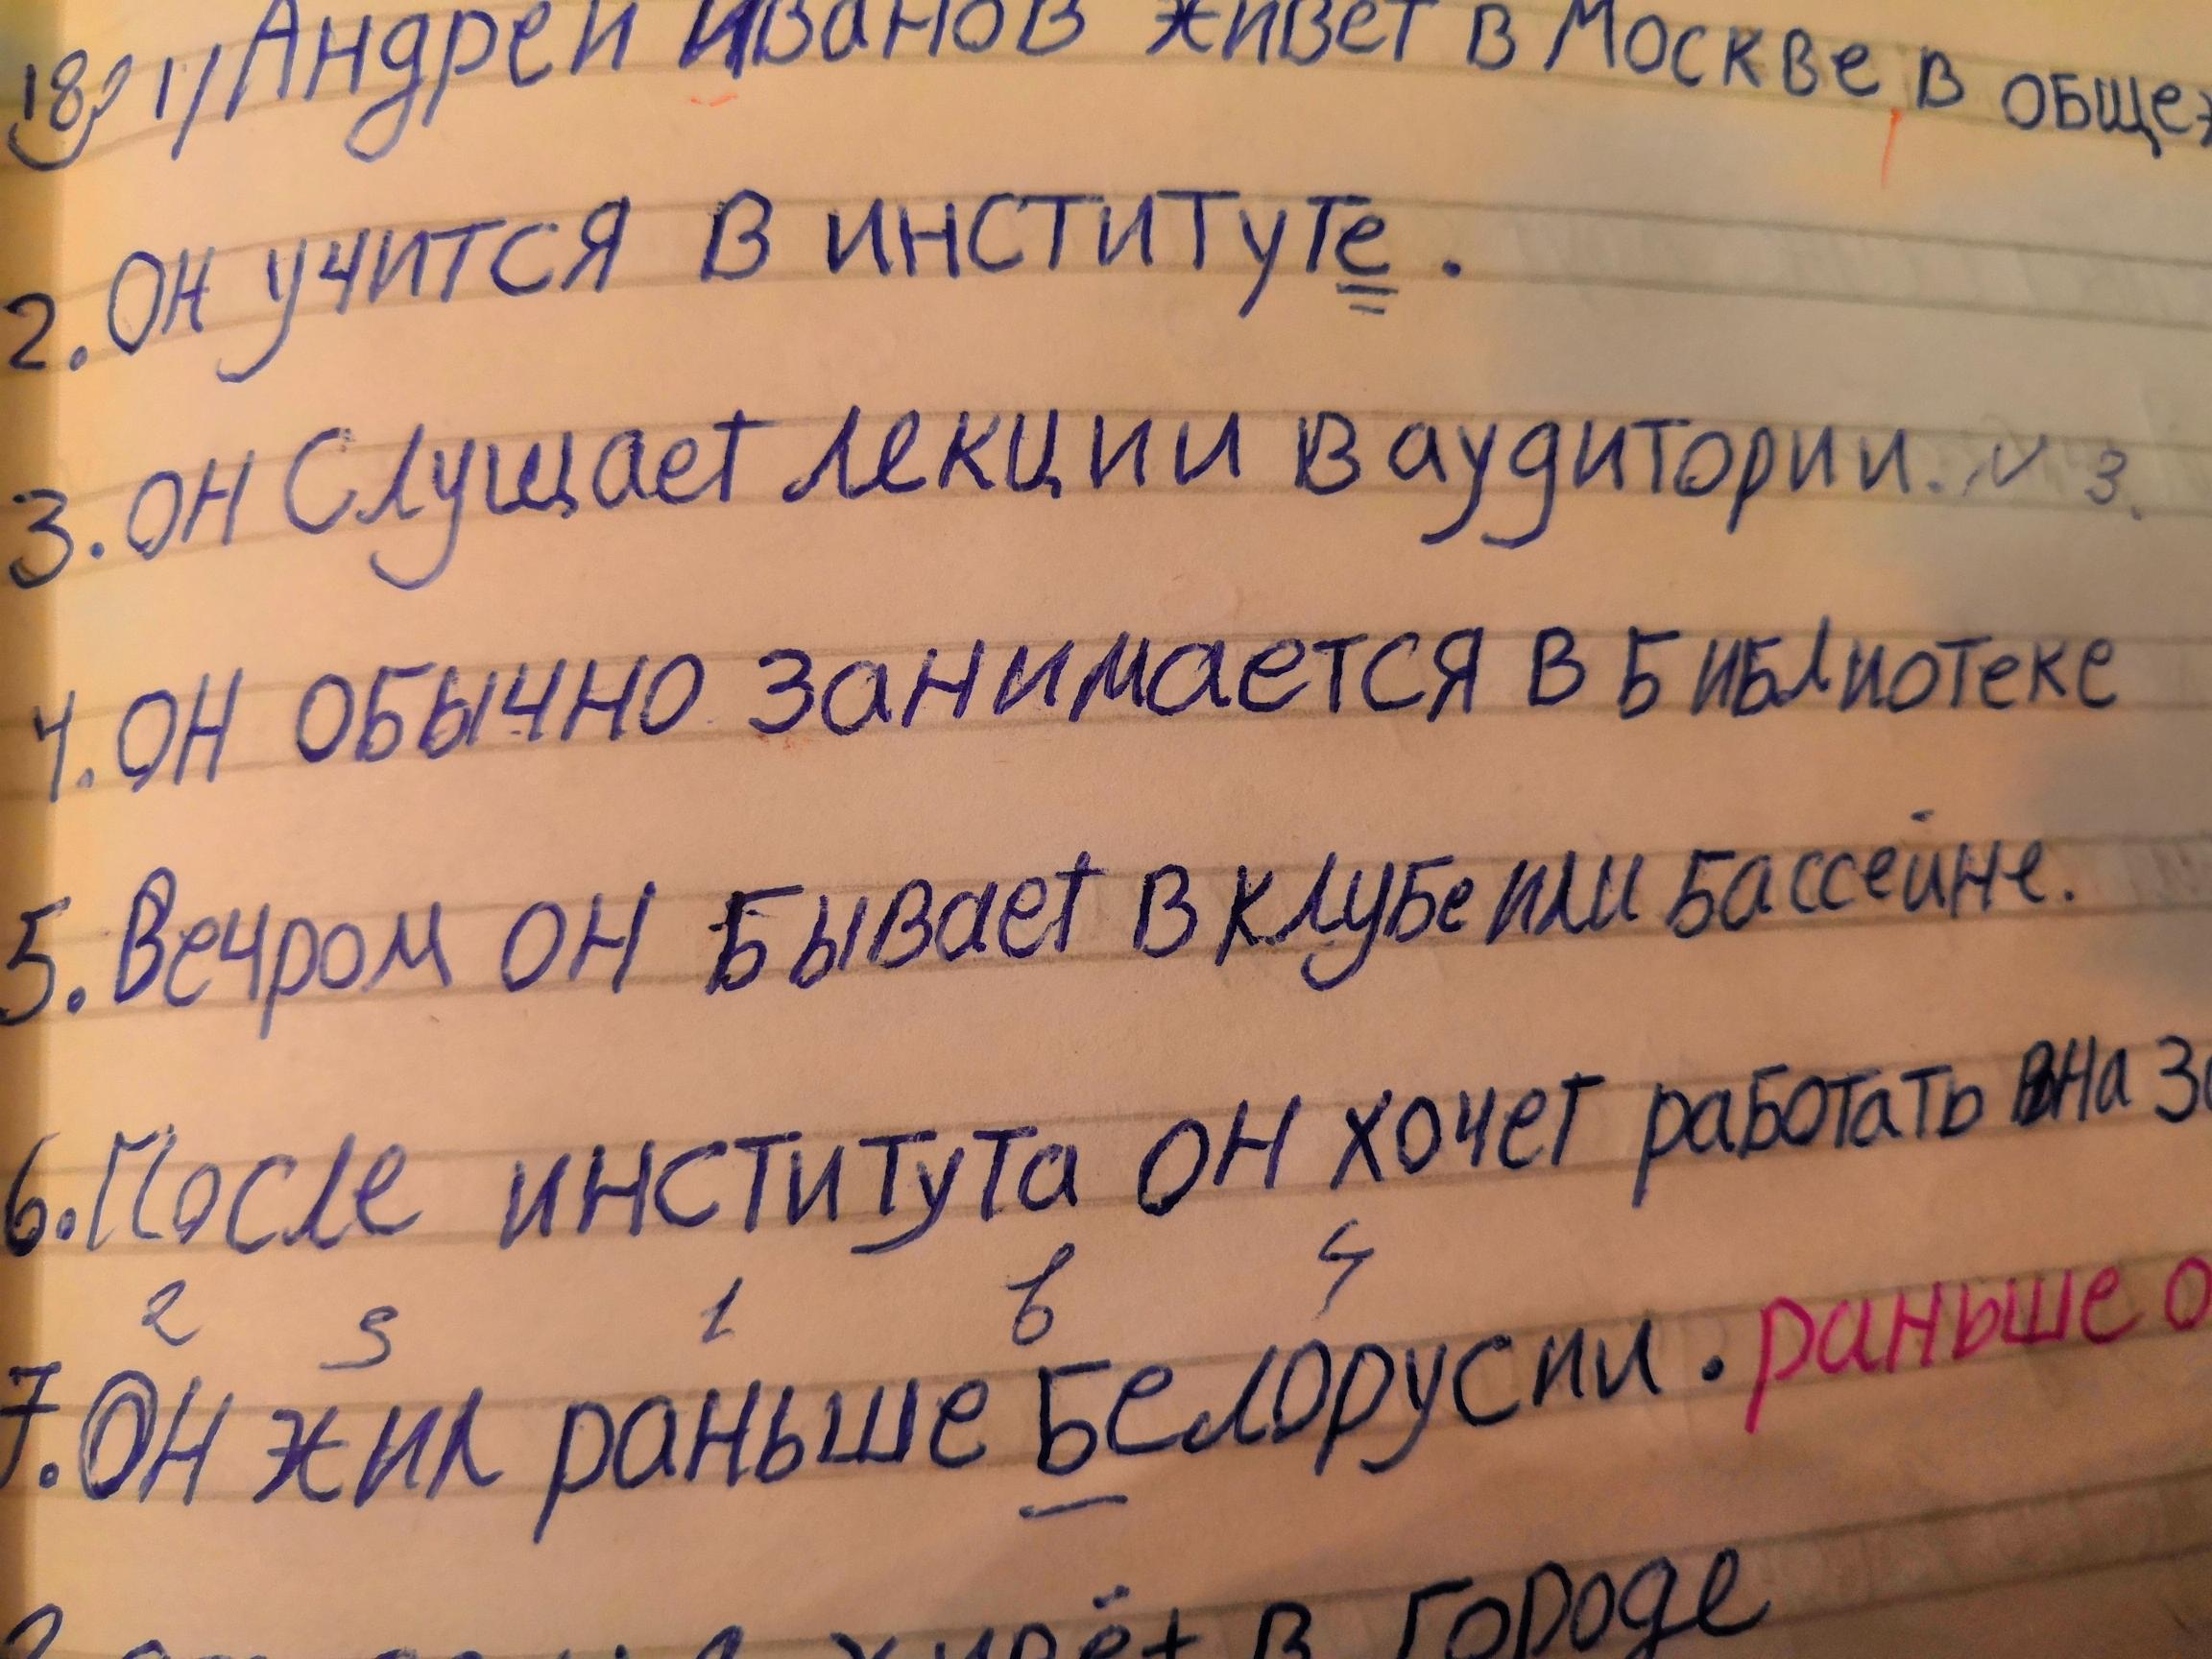 18) 1) Андрей Иванов живет в Москве в
2. Он учится в институте.
3. Он Слущает лекции в аудитории. N 3.
4. Он обычно занимается в Библиотеке
5. Вечром он Бывает в клубе или Бассейне.
6. После института он хочет работать на
2 3 1 6 4
7. Он жил раньше Белорусии. раньше
в городе